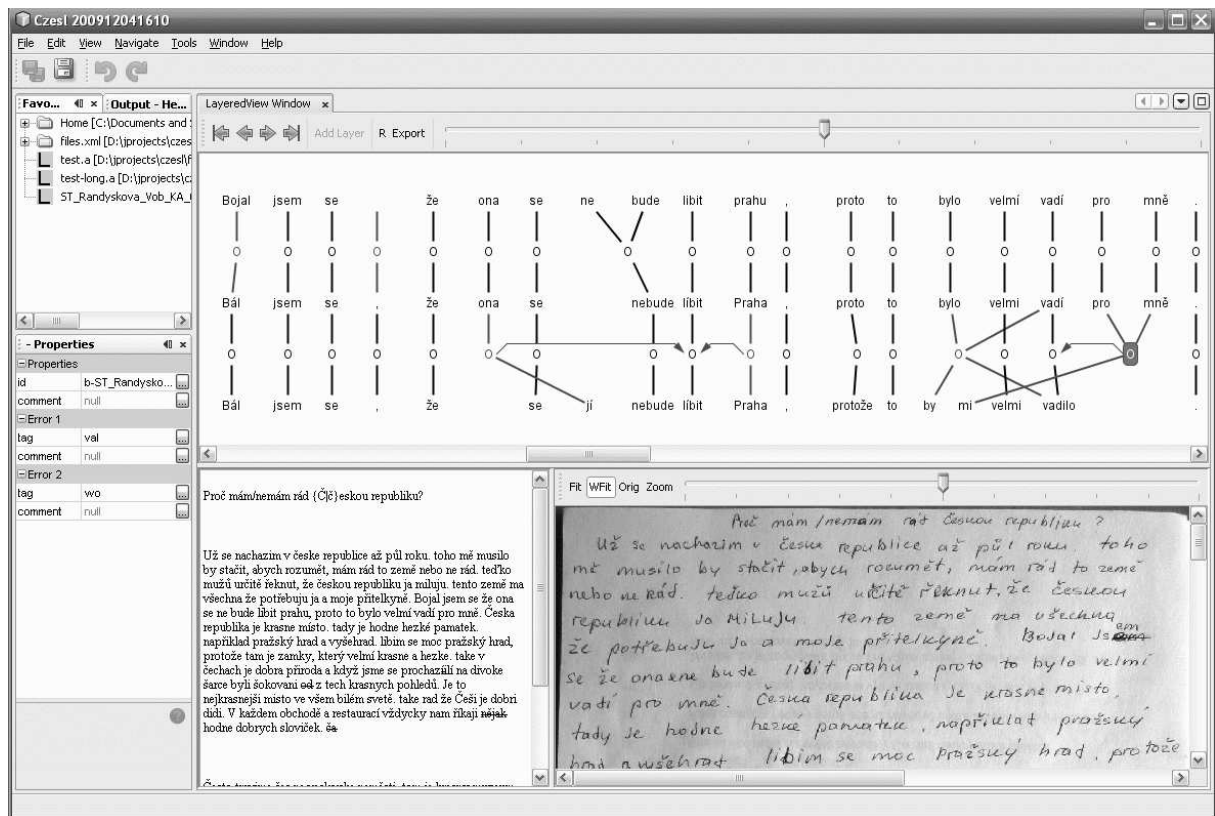 Czesl 200912041610
File Edit View Navigate Tools Window Help
Favo... Output - He...
Home [C:\Documents and
files.xml [D:\jprojects\czes
test.a [D:\jprojects\czesl\f
test-long.a [D:\jprojects\cz
ST_Randyskova_Vob_KA_
- Properties
Properties
id b-ST_Randysko... ...
comment null ...
Error 1
tag val ...
comment null ...
Error 2
tag wo ...
comment null ...
LayeredView Window
Add Layer R Export
Bojal jsem se že ona se ne bude libit prahu , proto to bylo velmí vadí pro mně .
Bál jsem se , že ona se nebude líbit Praha , proto to bylo velmi vadí pro mně .
Bál jsem se , že se jí nebude líbit Praha , protože to by mi velmi vadilo .
Proč mám/nemám rád {Č|č}eskou republiku?
Už se nachazim v česke republice až půl roku. toho mě musilo
by stačit, abych rozumět, mám rád to země nebo ne rád. teďko
mužů určitě řeknut, že českou republiku ja miluju. tento země ma
všechna že potřebuju ja a moje přitelkyně. Bojal jsem se že ona
se ne bude libit prahu, proto to bylo velmí vadí pro mně. Česka
republika je krasne místo. tady je hodne hezké pamatek.
například pražský hrad a vyšehrad. libim se moc pražský hrad,
protože tam je zamky, který velmí krasne a hezke. take v
čechach je dobra příroda a když jsme se prochazíĺi na divoke
šarce byli šokovani od z tech krasnych pohledů. Je to
nejkrasnejši misto ve všem bilém svetě. take rad že Češi je dobri
didi. V každem obchodě a restaurací vždycky nam říkaji nějak
hodne dobrych sloviček. ča
Fit WFit Orig Zoom
Proč mám /nemám rád českou republiku ?
Už se nachazim v česke republice až půl roku. toho
mě musilo by stačit, abych rozumět, mám rád to země
nebo ne rád. teďko mužů určitě řeknut, že českou
republiku Ja MiLuJu. tento země ma všechna
že potřebuju Ja a moje přitelkyně. Bojal Jsem
se že ona ne bude libit prahu, proto to bylo velmí
vadí pro mně. Česka republika Je krasne místo,
tady Je hodne hezké pamatek, například pražský
hrad a vyšehrad libim se moc pražský hrad, protože